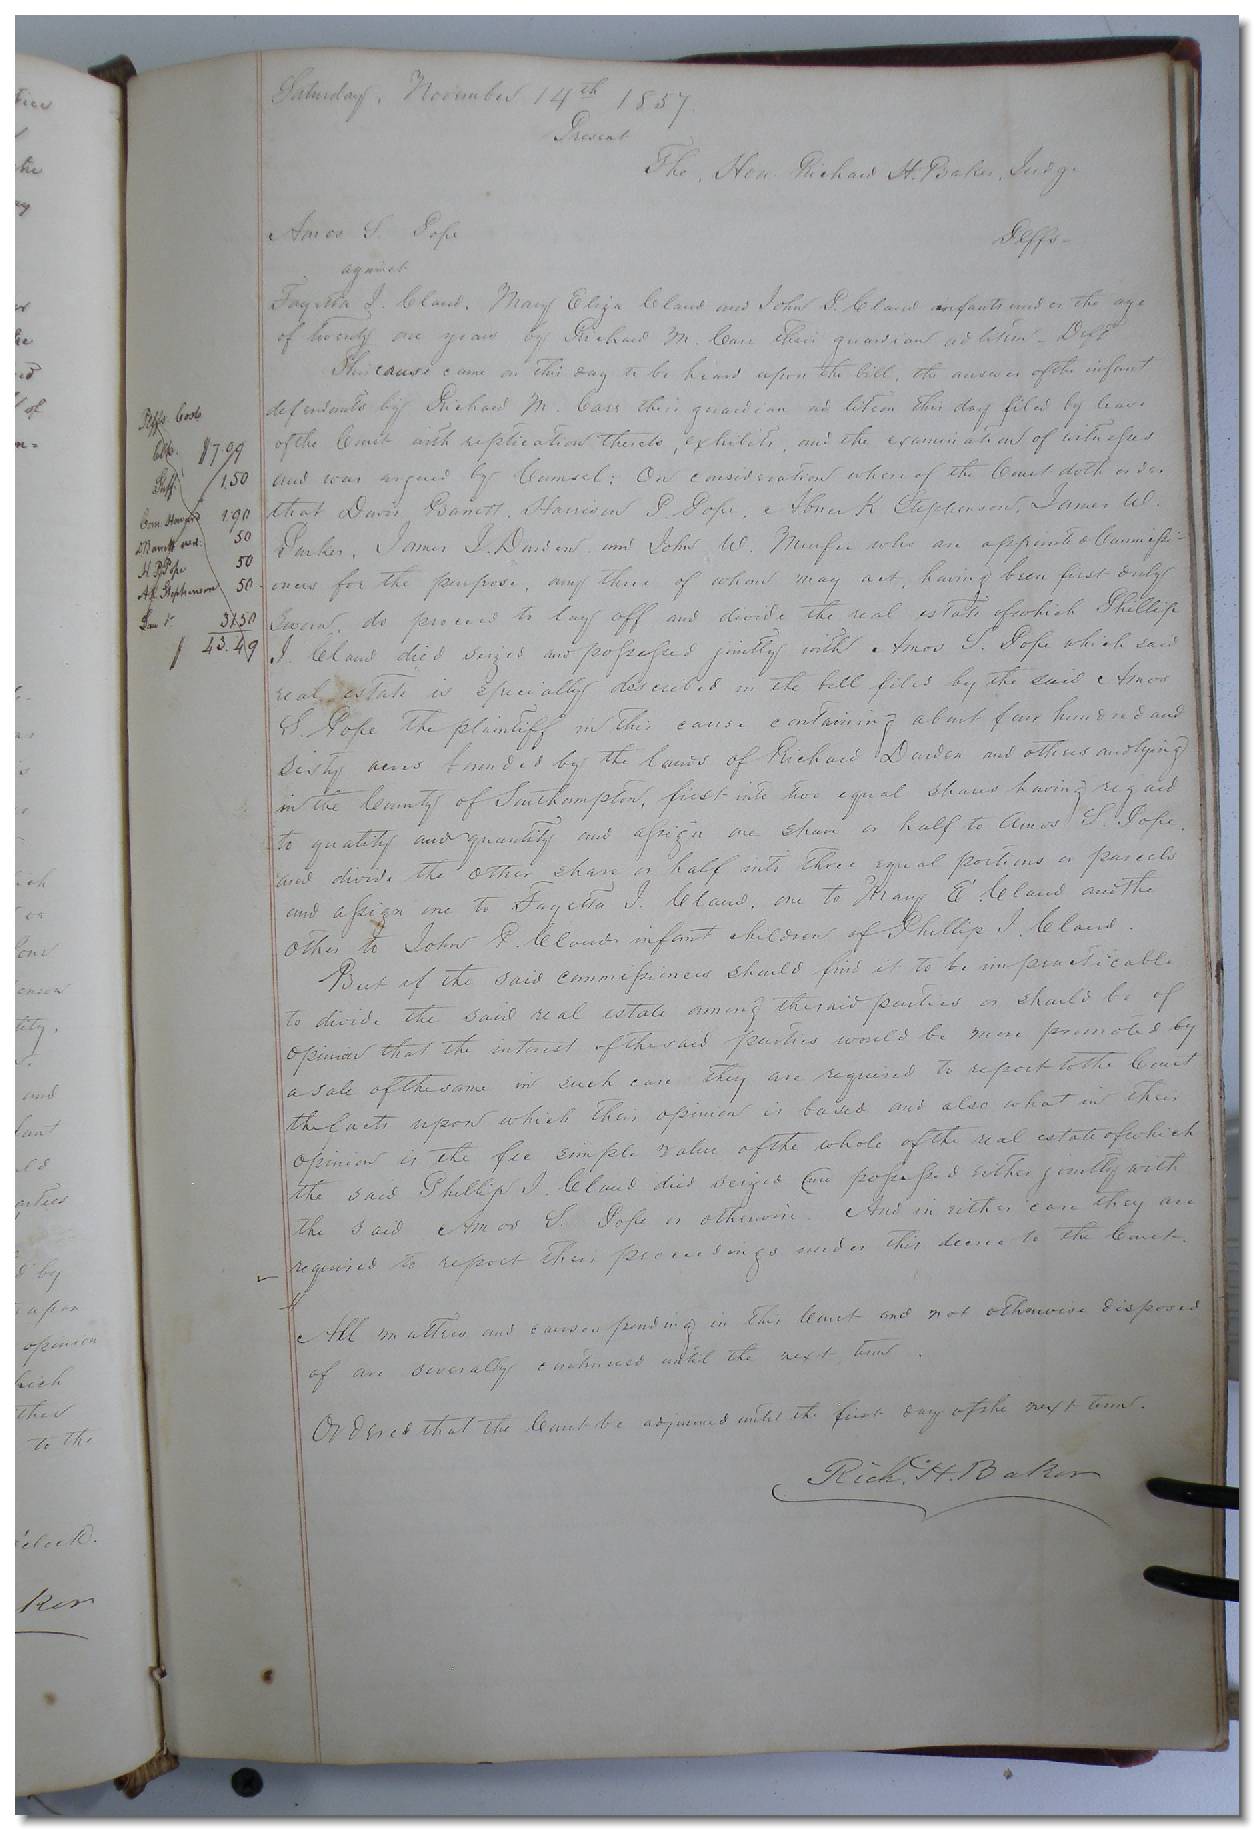 Saturday, November 14th 1857.
Present
The Hon. Richard H. Baker, Judge
Amos S. Pope Plffs-
against
Fayetta J. Claud, Mary Eliza Claud and John P. Claud infants under the age
of twenty one years by Richard M. Carr their guardian ad litem - Deft
This cause came on this day to be heard upon the bill, the answer of the infant
defendants by Richard M. Carr their guardian ad litem this day filed by leave
of the Court with replication thereto, exhibits, and the examination of witnesses
and was argued by Counsel: On consideration where of the Court doth order
that Davis Barrett, Harrison P. Pope, Abner K Stephenson, James W.
Parker, James J. Darden and John W. Murfee who are appointed Commissi-
oners for the purpose, any three of whom may act, having been first duly
Sworn, do proceed to lay off and divide the real estate of which Phillip
J. Claud died seized and possessed jointly with Amos S. Pope which said
real estate is specially described in the bill filed by the said Amos
S. Pope the plaintiff in this cause containing about four hundred and
sixty acres bounded by the lands of Richard Darden and others and lying
in the County of Southampton, first into two equal shares having regard
to quality and quantity and assign one share or half to Amos S. Pope,
and divide the other share or half into three equal portions or parcels
and assign one to Fayetta J. Claud, one to Mary E. Claud and the
other to John P. Claud infant children of Phillip J. Claud.
But if the said commissioners should find it to be impracticable
to divide the said real estate among the said parties or should be of
opinion that the interest of the said parties would be more promoted by
a sale of the same in such case they are required to report to the Court
the facts upon which their opinion is based and also what in their
opinion is the fee simple value of the whole of the real estate of which
the said Phillip J. Claud died seized and possessed either jointly with
the said Amos S. Pope or otherwise. And in either case they are
required to report their proceedings under this decree to the Court.
All matters and causes pending in this Court and not otherwise disposed
of are severally continued until the next term.
Ordered that the Court be adjourned until the first day of the next term.
Rich. H. Baker
Plffs. Costs
Clk. $7.99
Shff. 1.50
1.90
50
H. P. Pope 50
A. K. Stephenson 50
31.50
$ 43.49